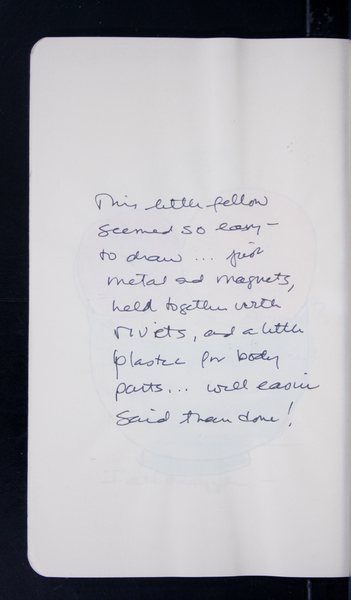 This little fellow
seemed so easy –
to draw ... just
metal and magnets,
held together with
rivets, and a little
plastic for body
parts... well easier
said than done!